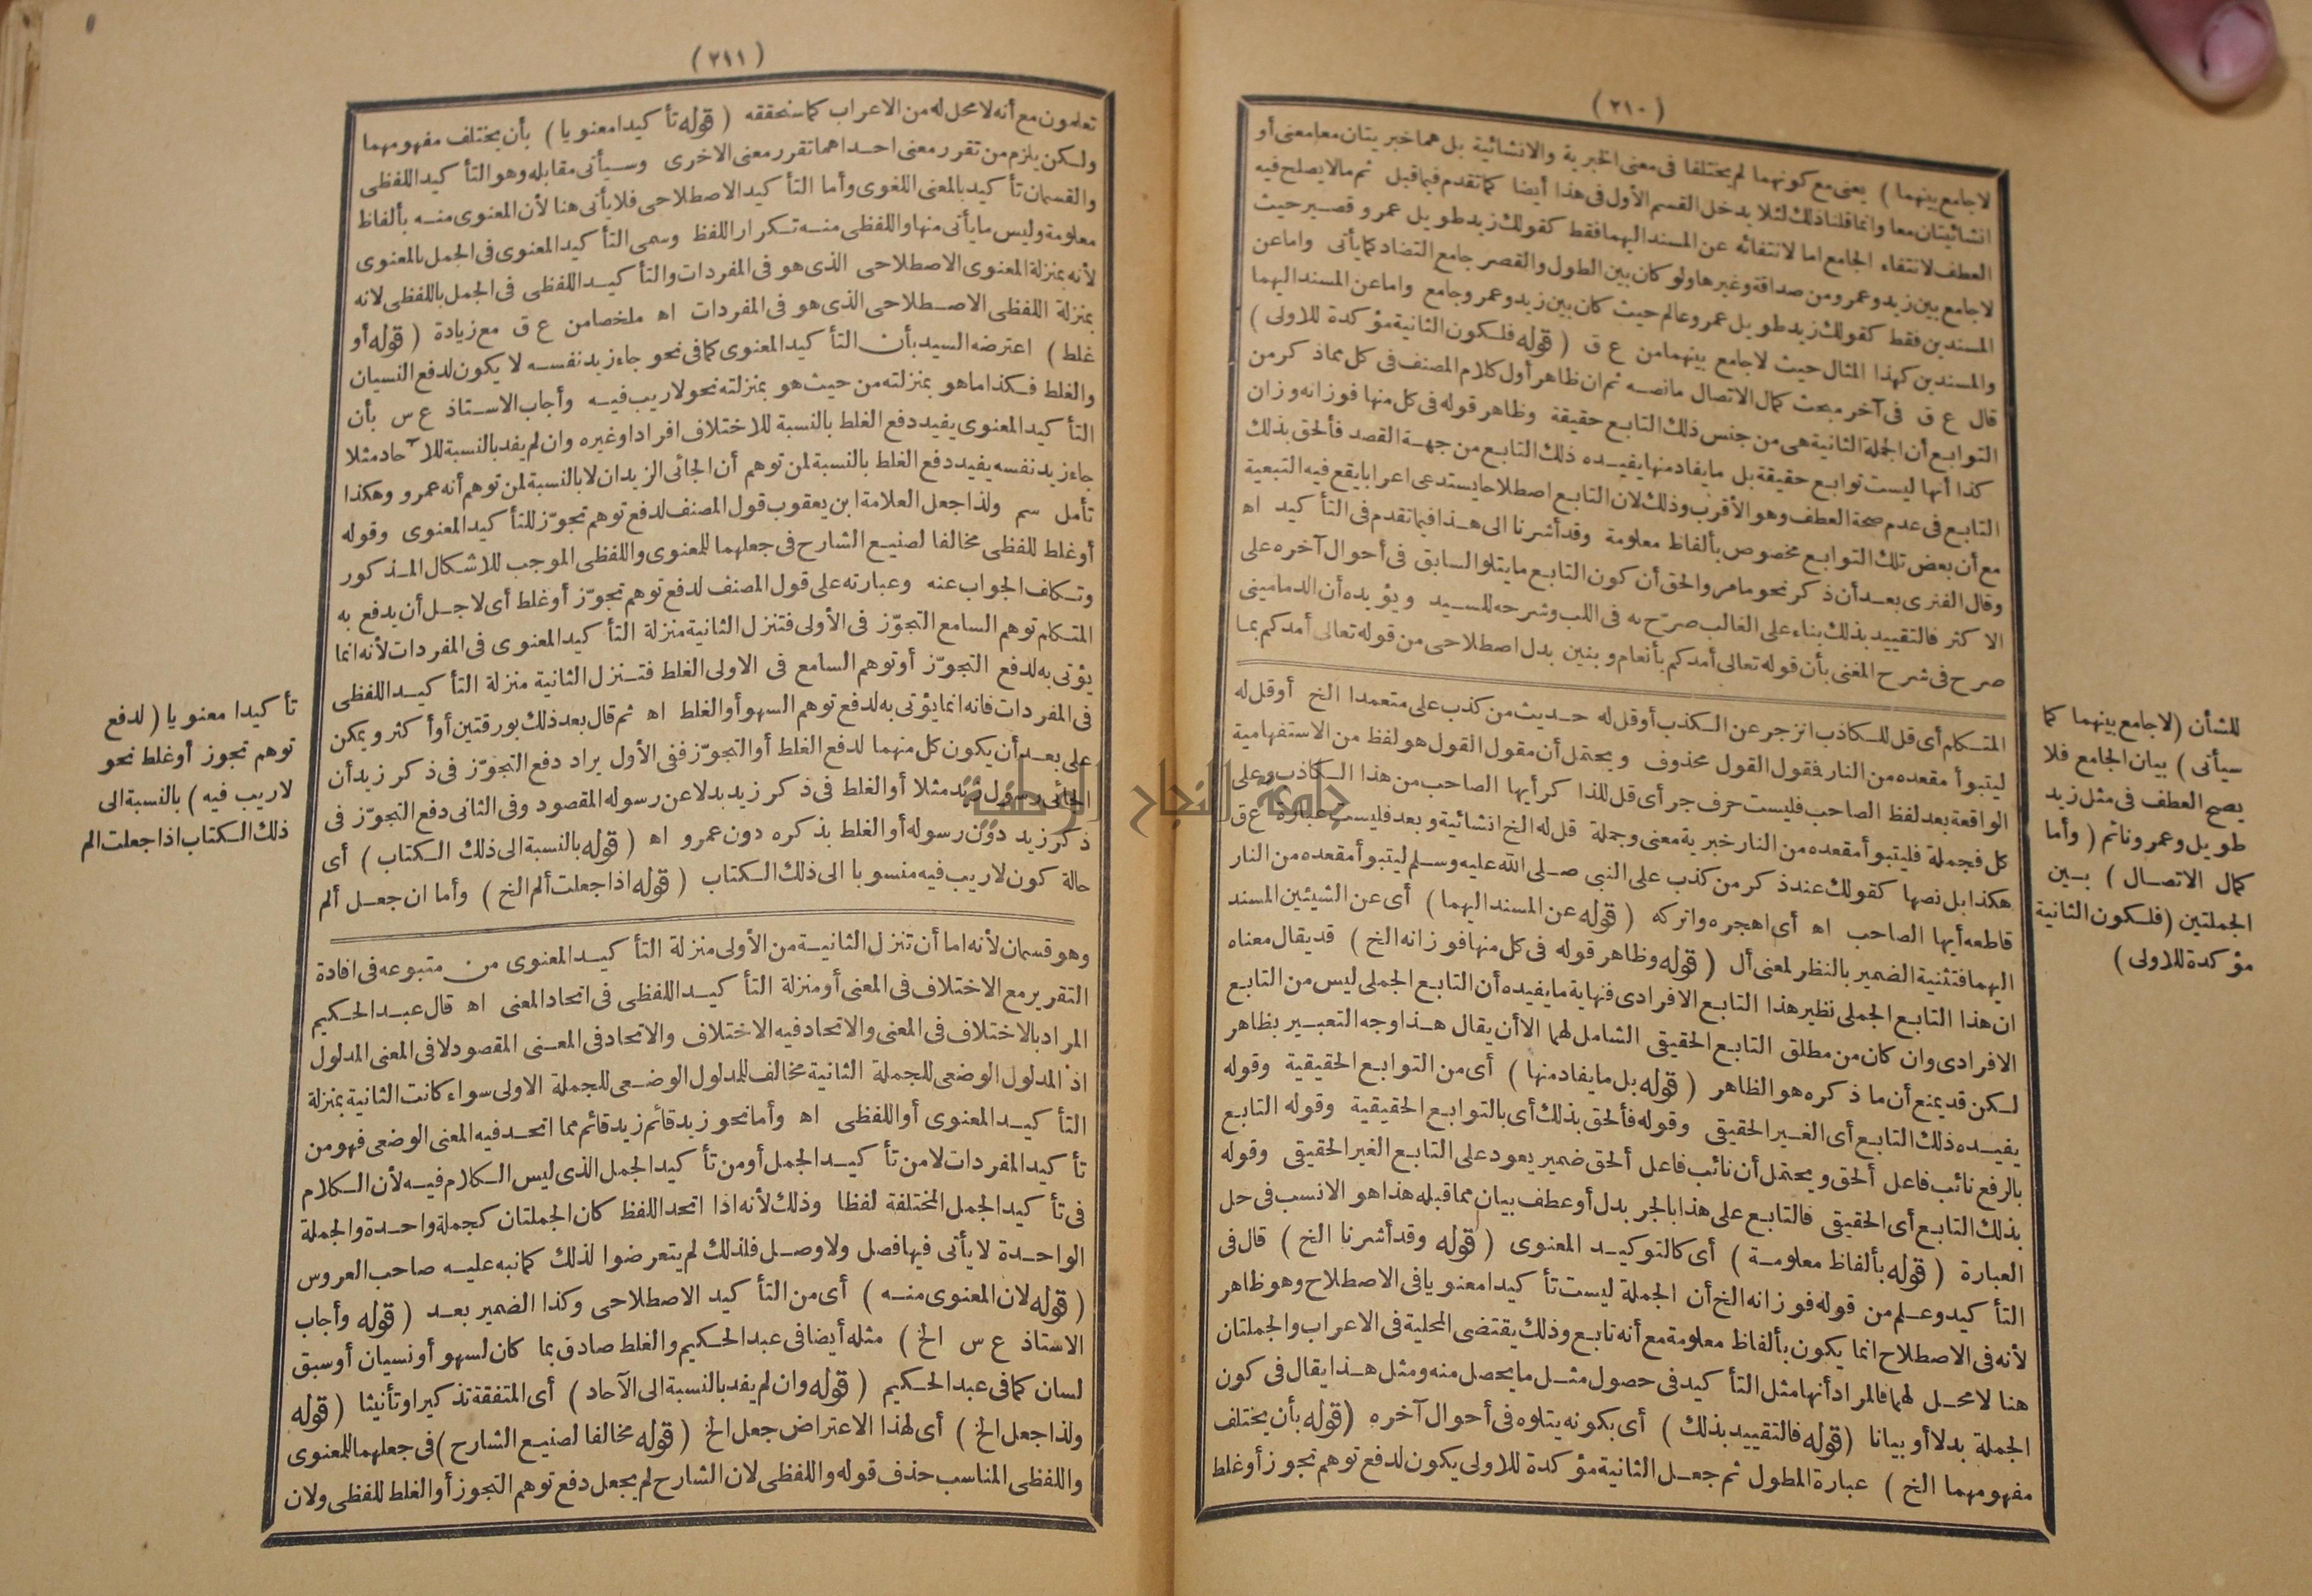 (٢١٠)
لاجامع بينهما) يعنى مع كونهما لم يختلفا فى معنى الخبرية والانشائية بل هما خبريتان معا معنى أو
انشائيتان معا وانما قلنا ذلك لئلا يدخل القسم الأول فى هذا أيضا كما تقدم فيما قبل ثم ما لا يصلح فيه
العطف لانتفاء الجامع اما لانتفائه عن المسند اليهما فقط كقولك زيد طويل عمرو قصير حيث
لاجامع بين زيد وعمرو من صداقة وغيرها ولو كان بين الطول والقصر جامع التضاد كما يأتى واما عن
المسندين فقط كقولك زيد طويل عمرو عالم حيث كان بين زيد وعمرو جامع واما عن المسند اليهما
والمسندين كهذا المثال حيث لاجامع بينهما من ع ق (قوله فلكون الثانية مؤكدة للاولى)
قال ع ق فى آخر مبحث كمال الاتصال مانصه ثم ان ظاهر أول كلام المصنف فى كل مما ذكر من
التوابع أن الجملة الثانية هى من جنس ذلك التابع حقيقة وظاهر قوله فى كل منها فوزانه وزان
كذا أنها ليست توابع حقيقة بل ما يفاد منها يفيده ذلك التابع من جهة القصد فألحق بذلك
التابع فى عدم صحة العطف وهو الأقرب وذلك لان التابع اصطلاحا يستدعى اعرابا يقع فيه التبعية
مع أن بعض تلك التوابع مخصوص بألفاظ معلومة وقد أشرنا الى هذا فيما تقدم فى التأكيد اه
وقال الفنرى بعد أن ذكر نحو مامر والحق أن كون التابع ما يتلو السابق فى أحوال آخره على
الاكثر فالتقييد بذلك بناء على الغالب صرّح به فى اللب وشرحه للسيد ويؤيده أن الدمامينى
صرح فى شرح المغنى بأن قوله تعالى أمدكم بأنعام وبنين بدل اصطلاحى من قوله تعالى أمدكم بما
للشأن (لاجامع بينهما كما
سيأتى) بيان الجامع فلا
يصح العطف فى مثل زيد
طويل وعمرو نائم (وأما
كمال الاتصال) بين
الجملتين (فلكون الثانية
مؤكدة للاولى)
المتكلم أى قل للكاذب انزجر عن الكذب أو قل له حديث من كذب على متعمدا الخ أو قل له
ليتبوأ مقعده من النار فقول القول محذوف ويحتمل أن مقول القول هو لفظ من الاستفهامية
الواقعة بعد لفظ الصاحب فليست حرف جر أى قل للذاكر أيها الصاحب من هذا الكاذب وعلى
كل فجملة فليتبوأ مقعده من النار خبرية معنى وجملة قل له الخ انشائية وبعد فليست عبارة ع ق
هكذا بل نصها كقولك عند ذكر من كذب على النبى صلى الله عليه وسلم ليتبوأ مقعده من النار
قاطعه أيها الصاحب اه أى اهجره واتركه (قوله عن المسند اليهما) أى عن الشيئين المسند
اليهما فتثنية الضمير بالنظر لمعنى أل (قوله وظاهر قوله فى كل منها فوزانه الخ) قد يقال معناه
ان هذا التابع الجملى نظير هذا التابع الافرادى فنهاية ما يفيده أن التابع الجملى ليس من التابع
الافرادى وان كان من مطلق التابع الحقيقى الشامل لهما الا أن يقال هذا وجه التعبير بظاهر
لكن قد يمنع أن ما ذكره هو الظاهر (قوله بل ما يفاد منها) أى من التوابع الحقيقية وقوله
يفيده ذلك التابع أى الغير الحقيقى وقوله فألحق بذلك أى بالتوابع الحقيقية وقوله التابع
بالرفع نائب فاعل ألحق ويحتمل أن نائب فاعل ألحق ضمير يعود على التابع الغير الحقيقى وقوله
بذلك التابع أى الحقيقى فالتابع على هذا بالجر بدل أو عطف بيان مما قبله هذا هو الانسب فى حل
العبارة (قوله بألفاظ معلومة) أى كالتوكيد المعنوى (قوله وقد أشرنا الخ) قال فى
التأكيد وعلم من قوله فوزانه الخ أن الجملة ليست تأكيدا معنويا فى الاصطلاح وهو ظاهر
لأنه فى الاصطلاح انما يكون بألفاظ معلومة مع أنه تابع وذلك يقتضى المحلية فى الاعراب والجملتان
هنا لا محل لهما فالمراد أنها مثل التأكيد فى حصول مثل ما يحصل منه ومثل هذا يقال فى كون
الجملة بدلا أو بيانا (قوله فالتقييد بذلك) أى بكونه يتلوه فى أحوال آخره (قوله بأن يختلف
مفهومهما الخ) عبارة المطول ثم جعل الثانية مؤكدة للاولى يكون لدفع توهم تجوز أو غلط
(٢١١)
تعلمون مع أنه لا محل له من الاعراب كما سنحققه (قوله تأكيدا معنويا) بأن يختلف مفهومهما
ولكن يلزم من تقرر معنى احداهما تقرر معنى الاخرى وسيأتى مقابله وهو التأكيد اللفظى
والقسمان تأكيد بالمعنى اللغوى وأما التأكيد الاصطلاحى فلا يأتى هنا لأن المعنوى منه بألفاظ
معلومة وليس ما يأتى منها واللفظى منه تكرار اللفظ وسمى التأكيد المعنوى فى الجمل بالمعنوى
لأنه بمنزلة المعنوى الاصطلاحى الذى هو فى المفردات والتأكيد اللفظى فى الجمل باللفظى لانه
بمنزلة اللفظى الاصطلاحى الذى هو فى المفردات اه ملخصا من ع ق مع زيادة (قوله أو
غلط) اعترضه السيد بأن التأكيد المعنوى كما فى نحو جاء زيد نفسه لا يكون لدفع النسيان
والغلط فكذا ما هو بمنزلته من حيث هو بمنزلته نحو لاريب فيه وأجاب الاستاذ ع س بأن
التأكيد المعنوى يفيد دفع الغلط بالنسبة للاختلاف افرادا وغيره وان لم يفد بالنسبة للآحاد مثلا
جاء زيد نفسه يفيد دفع الغلط بالنسبة لمن توهم أن الجائى الزيدان لا بالنسبة لمن توهم أنه عمرو وهكذا
تأمل سم ولذا جعل العلامة ابن يعقوب قول المصنف لدفع توهم تجوّز للتأكيد المعنوى وقوله
أو غلط للفظى مخالفا لصنيع الشارح فى جعلهما للمعنوى واللفظى الموجب للاشكال المذكور
وتكلف الجواب عنه وعبارته على قول المصنف لدفع توهم تجوّز أو غلط أى لاجل أن يدفع به
المتكلم توهم السامع التجوّز فى الأولى فتنزل الثانية منزلة التأكيد المعنوى فى المفردات لأنه انما
يؤتى به لدفع التجوّز أو توهم السامع فى الاولى الغلط فتنزل الثانية منزلة التأكيد اللفظى
فى المفردات فانه انما يؤتى به لدفع توهم السهو أو الغلط اه ثم قال بعد ذلك بورقتين أو أكثر ويمكن
على بعد أن يكون كل منهما لدفع الغلط أو التجوّز ففى الأول يراد دفع التجوّز فى ذكر زيد أن
الجائى رسول زيد مثلا أو الغلط فى ذكر زيد بدلا عن رسوله المقصود وفى الثانى دفع التجوّز فى
ذكر زيد دون رسوله أو الغلط بذكره دون عمرو اه (قوله بالنسبة الى ذلك الكتاب) أى
حالة كون لاريب فيه منسوبا الى ذلك الكتاب (قوله اذا جعلت ألم الخ) وأما ان جعل ألم
تأكيدا معنويا (لدفع
توهم تجوز أو غلط نحو
لاريب فيه) بالنسبة الى
ذلك الكتاب اذا جعلت الم
وهو قسمان لأنه اما أن تنزل الثانية من الأولى منزلة التأكيد المعنوى من متبوعه فى افادة
التقرير مع الاختلاف فى المعنى أو منزلة التأكيد اللفظى فى اتحاد المعنى اه قال عبد الحكيم
المراد بالاختلاف فى المعنى والاتحاد فيه الاختلاف والاتحاد فى المعنى المقصود لا فى المعنى المدلول
اذ المدلول الوضعى للجملة الثانية مخالف للمدلول الوضعى للجملة الاولى سواء كانت الثانية بمنزلة
التأكيد المعنوى أو اللفظى اه وأما نحو زيد قائم زيد قائم مما اتحد فيه المعنى الوضعى فهو من
تأكيد المفردات لا من تأكيد الجمل أو من تأكيد الجمل الذى ليس الكلام فيه لأن الكلام
فى تأكيد الجمل المختلفة لفظا وذلك لأنه اذا اتحد اللفظ كان الجملتان كجملة واحدة والجملة
الواحدة لا يأتى فيها فصل ولا وصل فلذلك لم يتعرضوا لذلك كما نبه عليه صاحب العروس
(قوله لان المعنوى منه) أى من التأكيد الاصطلاحى وكذا الضمير بعد (قوله وأجاب
الاستاذ ع س الخ) مثله أيضا فى عبد الحكيم والغلط صادق بما كان لسهو أو نسيان أو سبق
لسان كما فى عبد الحكيم (قوله وان لم يفد بالنسبة الى الآحاد) أى المتفقة تذكيرا وتأنيثا (قوله
ولذا جعل الخ) أى لهذا الاعتراض جعل الخ (قوله مخالفا لصنيع الشارح) فى جعلهما للمعنوى
واللفظى المناسب حذف قوله واللفظى لان الشارح لم يجعل دفع توهم التجوز أو الغلط للفظى ولان
جامعة النجاح الوطنية